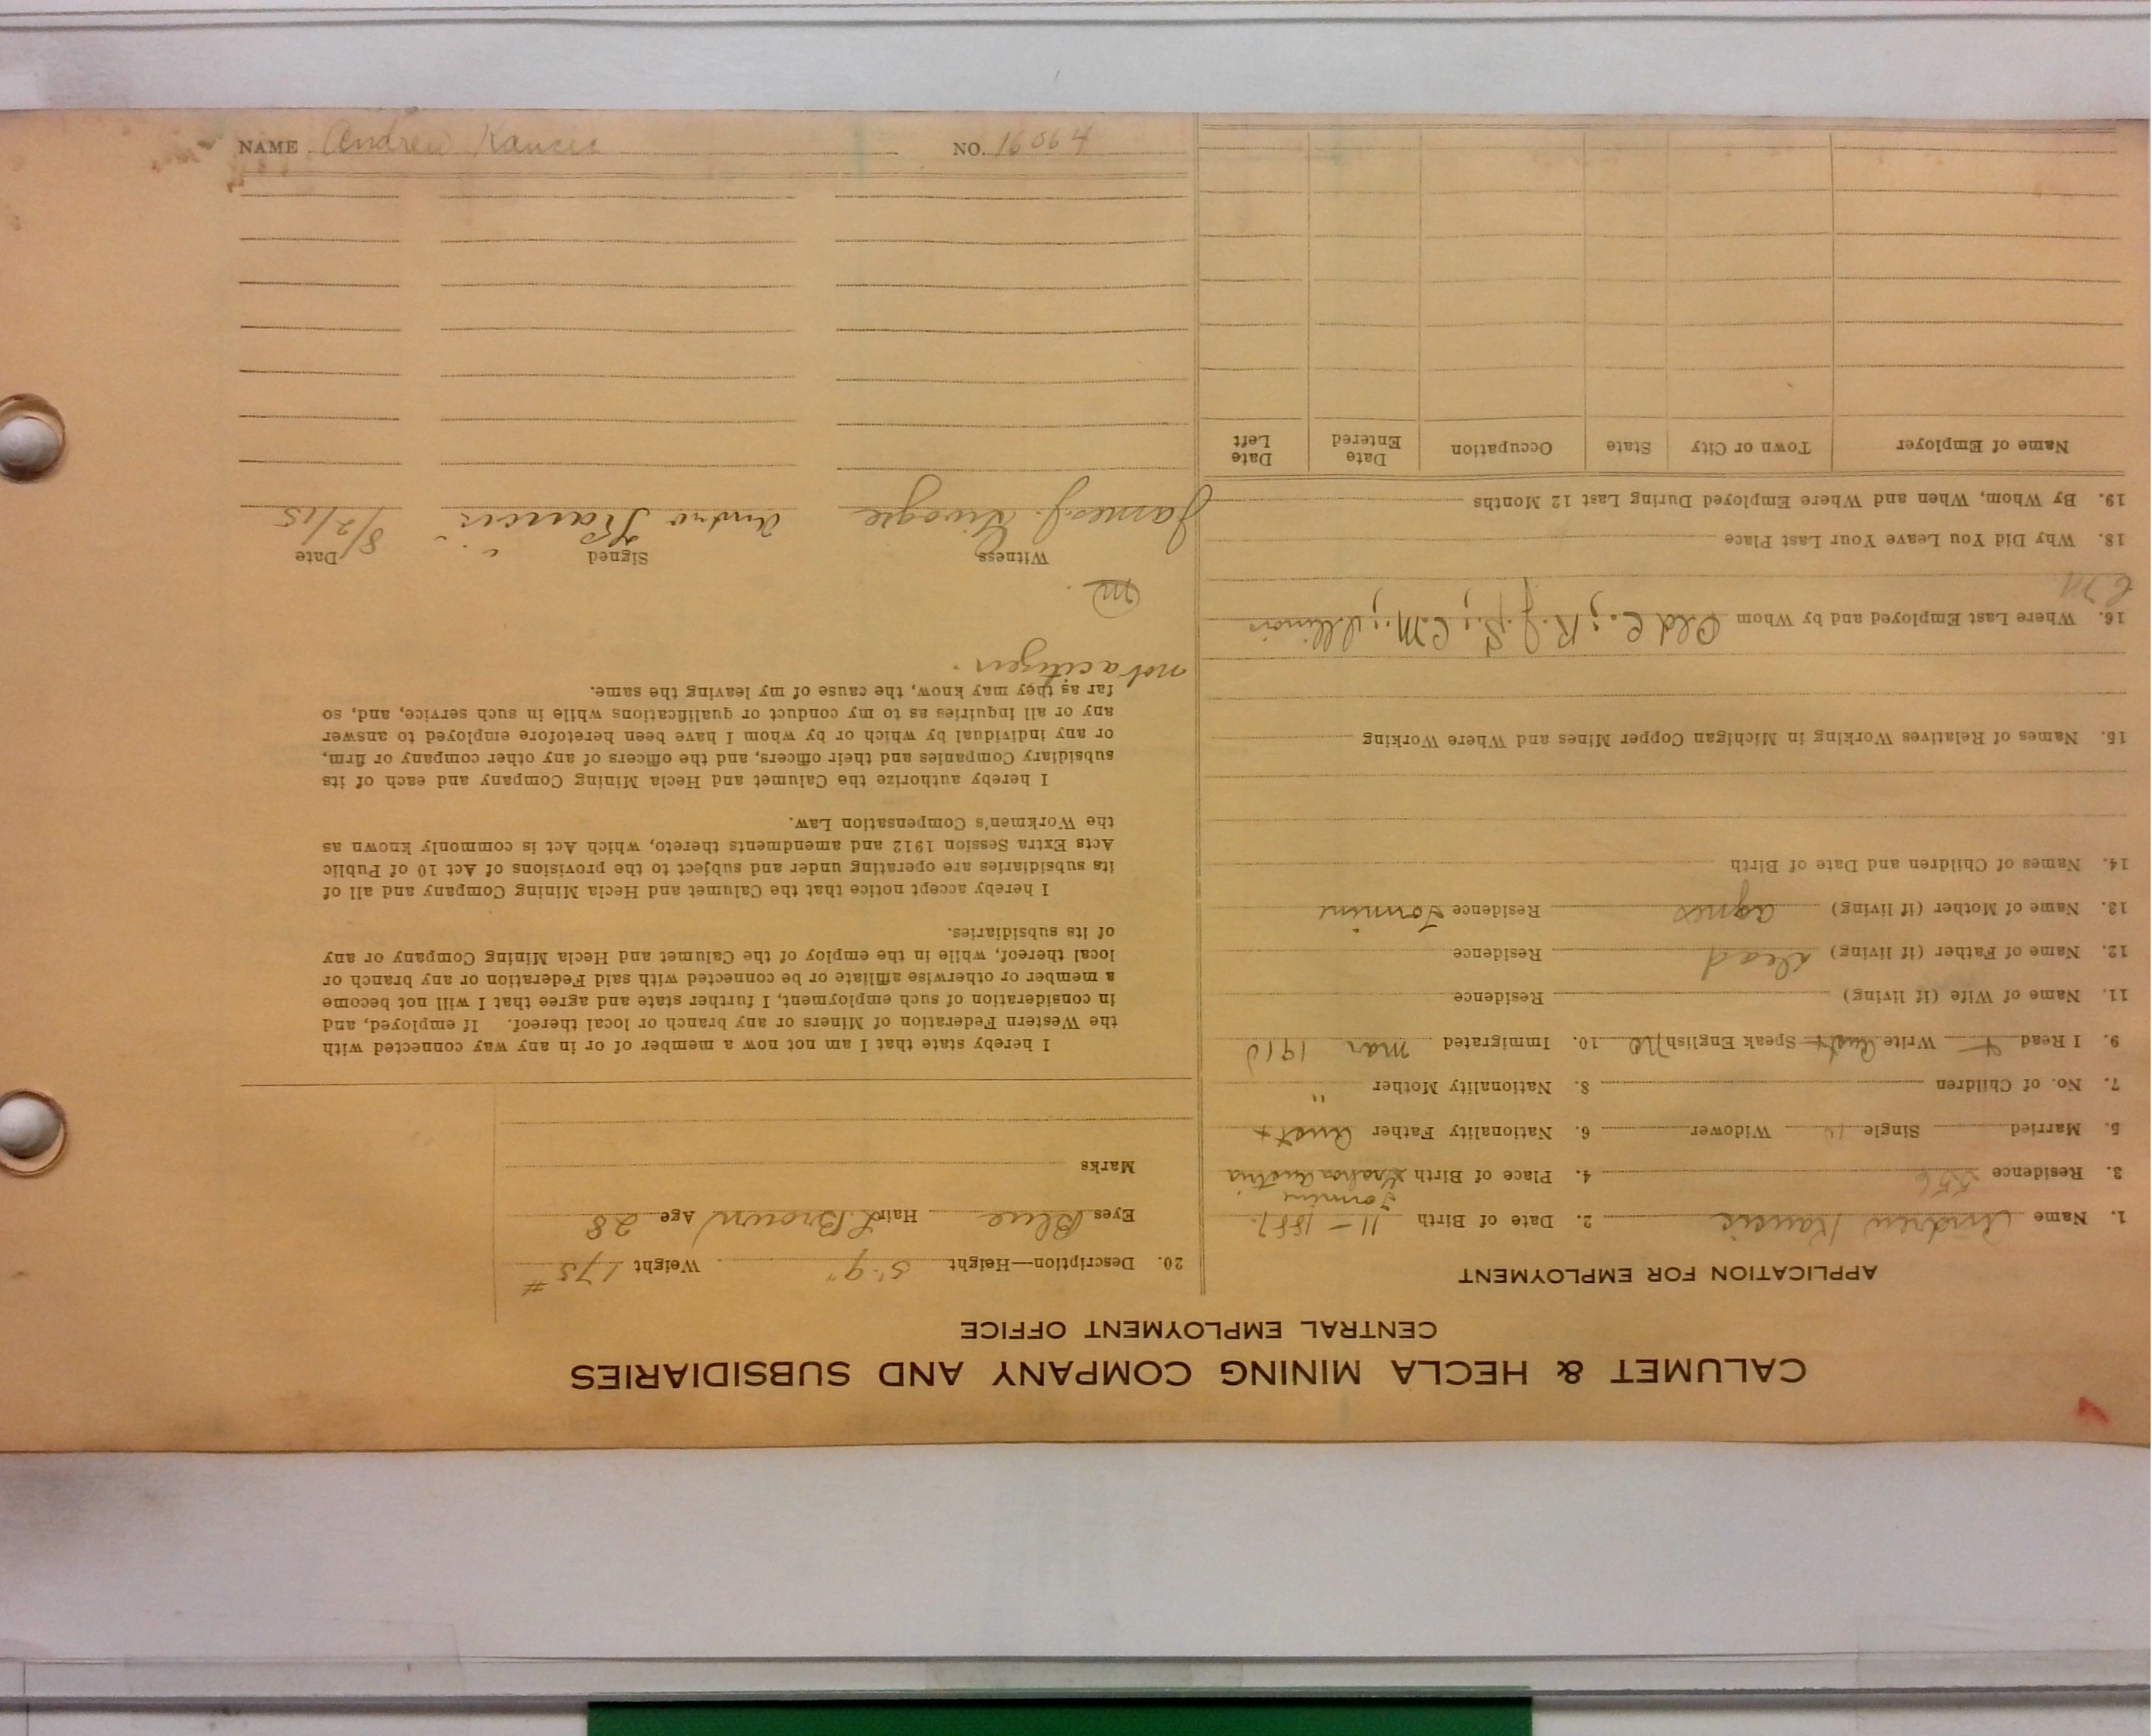 CALUMET & HECLA MINING COMPANY AND SUBSIDIARIES
CENTRAL EMPLOYMENT OFFICE
APPLICATION FOR EMPLOYMENT
1. Name Andrew Kaucic 2. Date of Birth 11 - 1887.
3. Residence 556 4. Place of Birth Austria
5. Married Single Widower 6. Nationality Father Aust
7. No. of Children 8. Nationality Mother "
9. I Read Write Aust Speak English No 10. Immigrated Mar 1910
11. Name of Wife (if living) Residence
12. Name of Father (if living) Dead Residence
13. Name of Mother (if living) Agnes Residence
14. Names of Children and Date of Birth
15. Names of Relatives Working in Michigan Copper Mines and Where Working
16. Where Last Employed and by Whom Old C.; R. J. S.; C. M.; Illinois
C M
18. Why Did You Leave Your Last Place
19. By Whom, When and Where Employed During Last 12 Months
Name of Employer Town or City State Occupation Date Entered Date Left
20. Description—Height 5'-9" Weight 175 #
Eyes Blue Hair L. Brown Age 28
Marks
I hereby state that I am not now a member of or in any way connected with
the Western Federation of Miners or any branch or local thereof. If employed, and
in consideration of such employment, I further state and agree that I will not become
a member or otherwise affiliate or be connected with said Federation or any branch or
local thereof, while in the employ of the Calumet and Hecla Mining Company or any
of its subsidiaries.
I hereby accept notice that the Calumet and Hecla Mining Company and all of
its subsidiaries are operating under and subject to the provisions of Act 10 of Public
Acts Extra Session 1912 and amendments thereto, which Act is commonly known as
the Workmen's Compensation Law.
I hereby authorize the Calumet and Hecla Mining Company and each of its
subsidiary Companies and their officers, and the officers of any other company or firm,
or any individual by which or by whom I have been heretofore employed to answer
any or all inquiries as to my conduct or qualifications while in such service, and, so
far as they may know, the cause of my leaving the same.
not a citizen.
M.
Witness Signed Date
James J. Andro Kaucic 8/2/15
NAME Andrew Kaucic NO. 16064